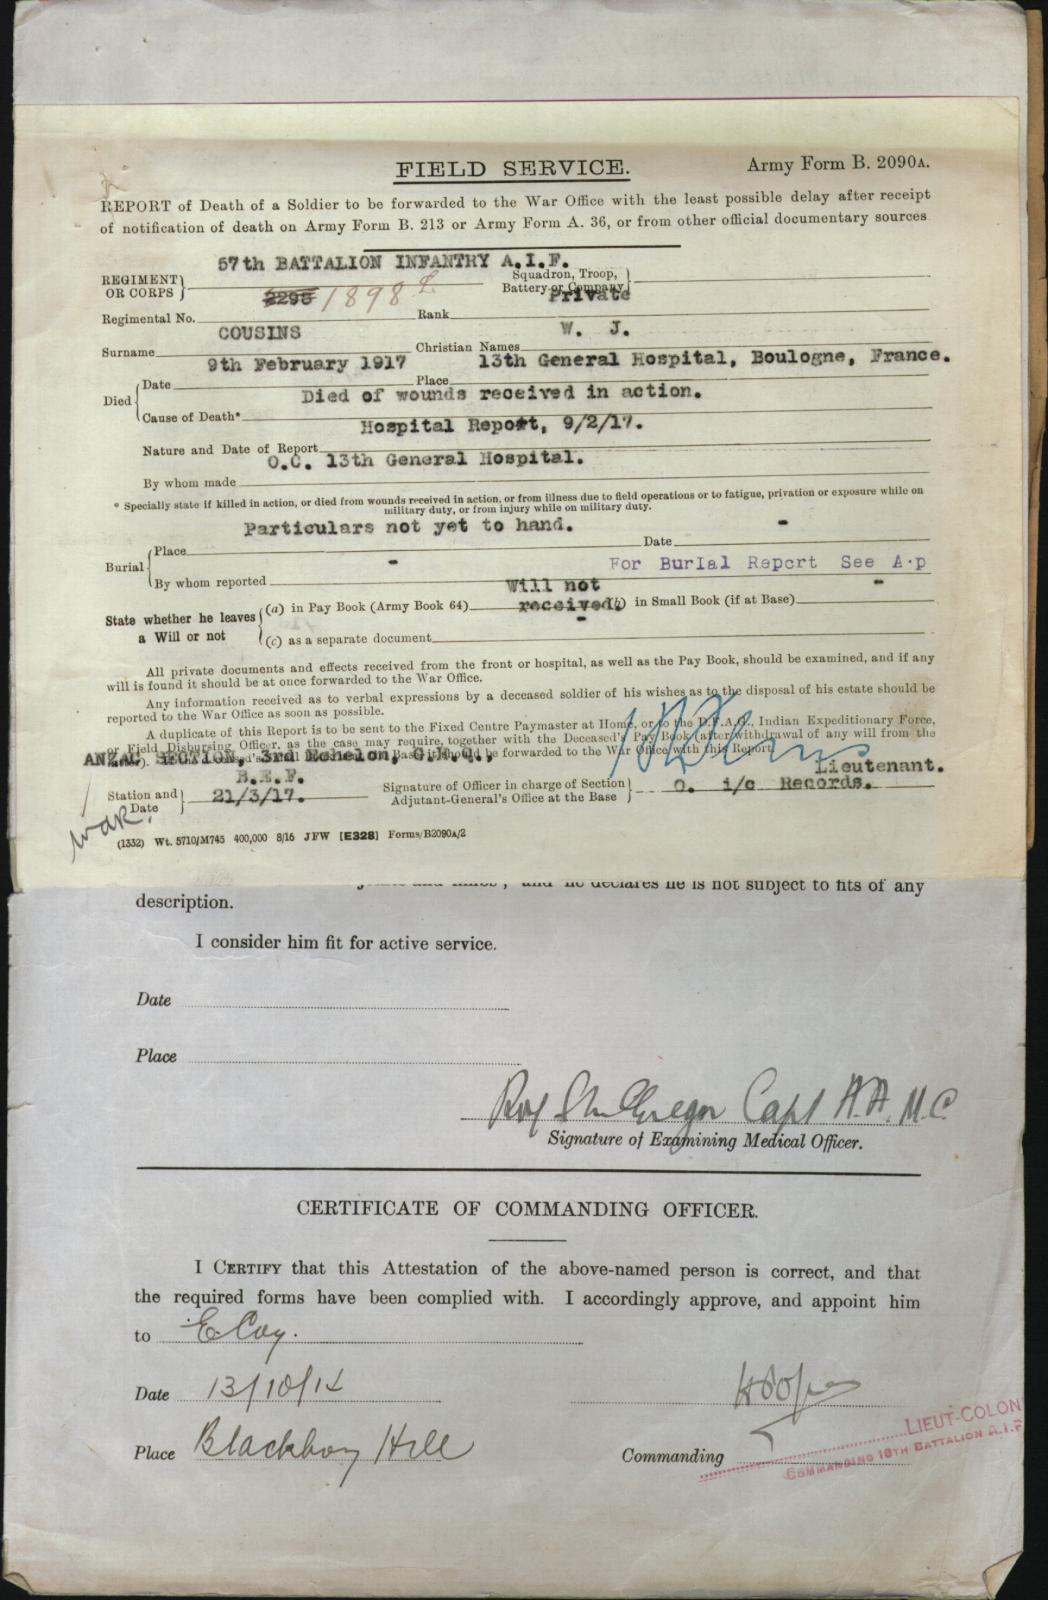 FIELD SERVICE.
Army Form B. 2090A.
REPORT of Death of a Soldier to be forwarded to the War Office with the least possible delay after receipt
of notification of death on Army Form B. 213 or Army Form A. 36, or from other official documentary sources
REGIMENT OR CORPS } 57th BATTALION INFANTRY A.I.F. Squadron, Troop, Battery or Company }
Regimental No. 2295 1898 Rank Private
Surname COUSINS Christian Names W. J.
Died { Date 9th February 1917 Place 13th General Hospital, Boulogne, France.
Cause of Death* Died of wounds received in action.
Nature and Date of Report Hospital Report, 9/2/17.
By whom made O.C. 13th General Hospital.
* Specially state if killed in action, or died from wounds received in action, or from illness due to field operations or to fatigue, privation or exposure while on
military duty, or from injury while on military duty.
Burial { Place Particulars not yet to hand. Date -
By whom reported - For Burial Report See A.p
State whether he leaves a Will or not { (a) in Pay Book (Army Book 64) Will not received. (b) in Small Book (if at Base) -
(c) as a separate document -
All private documents and effects received from the front or hospital, as well as the Pay Book, should be examined, and if any
will is found it should be at once forwarded to the War Office.
Any information received as to verbal expressions by a deceased soldier of his wishes as to the disposal of his estate should be
reported to the War Office as soon as possible.
A duplicate of this Report is to be sent to the Fixed Centre Paymaster at Home, or to the D.F.A.G., Indian Expeditionary Force,
or Field Disbursing Officer, as the case may require, together with the Deceased's Pay Book (after withdrawal of any will from the
be forwarded to the War Office with this Report.
ANZAC SECTION, 3rd Echelon, G.H.Q.,
B.E.F.
Lieutenant.
Station and Date } 21/3/17. Signature of Officer in charge of Section Adjutant-General's Office at the Base } O. i/c Records.
War.
(1332) Wt. 5710/M745 400,000 8/16 JFW [E328] Forms/B2090A/2
and he declares he is not subject to fits of any
description.
I consider him fit for active service.
Date
Place
Capt A.A.M.C
Signature of Examining Medical Officer.
CERTIFICATE OF COMMANDING OFFICER.
I CERTIFY that this Attestation of the above-named person is correct, and that
the required forms have been complied with. I accordingly approve, and appoint him
to E Coy.
Date 13/10/14
Place Blackboy Hill
Commanding
LIEUT-COLON
COMMANDING 16TH BATTALION A.I.F